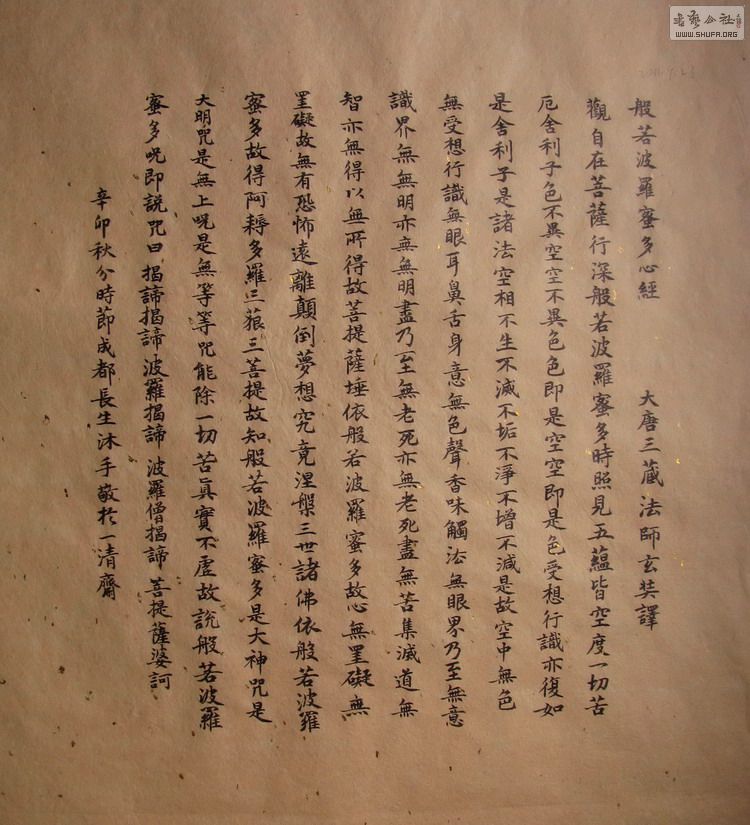 般若波羅蜜多心經 大唐三藏法師玄奘譯
觀自在菩薩行深般若波羅蜜多時照見五蘊皆空度一切苦
厄舍利子色不異空空不異色色即是空空即是色受想行識亦復如
是舍利子是諸法空相不生不滅不垢不淨不增不減是故空中無色
無受想行識無眼耳鼻舌身意無色聲香味觸法無眼界乃至無意
識界無無明亦無無明盡乃至無老死亦無老死盡無苦集滅道無
智亦無得以無所得故菩提薩埵依般若波羅蜜多故心無罣礙無
罣礙故無有恐怖遠離顛倒夢想究竟涅槃三世諸佛依般若波羅
蜜多故得阿耨多羅三藐三菩提故知般若波羅蜜多是大神咒是
大明咒是無上呪是無等等咒能除一切苦真實不虛故說般若波羅
蜜多呪即說咒曰 揭諦揭諦 波羅揭諦 波羅僧揭諦 菩提薩婆訶
辛卯秋分時節成都長生沐手敬於一清齋
書藝公社
WWW.SHUFA.ORG